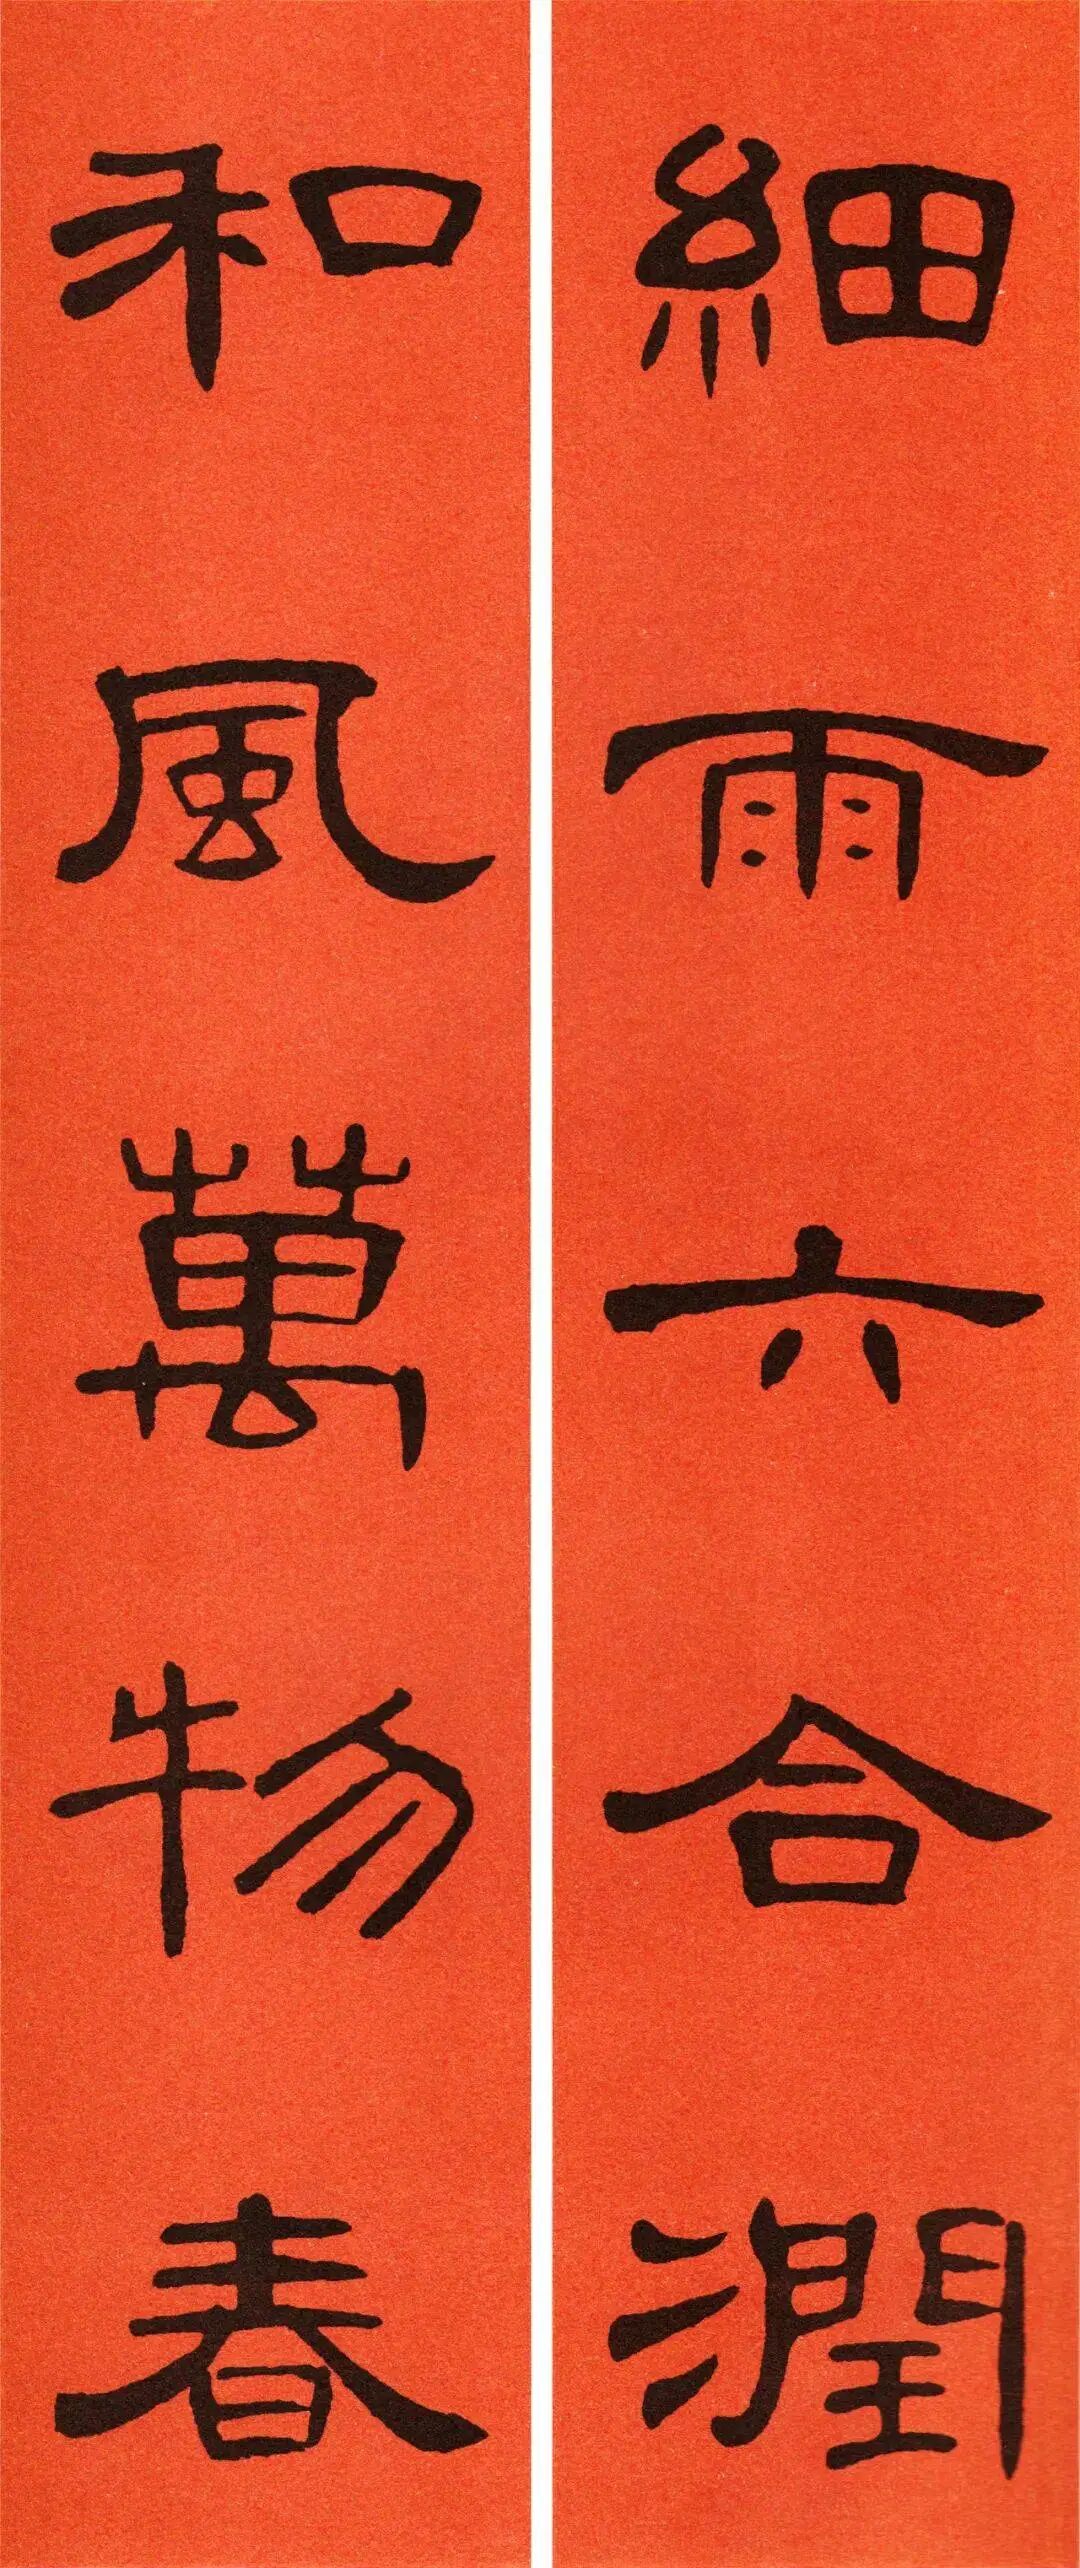 細雨六合潤
和風萬物春